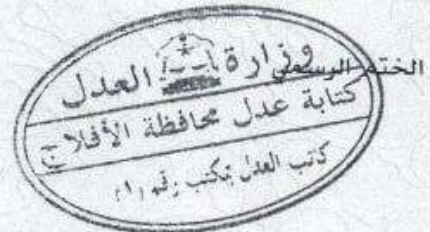 الختم الرسمي
وزارة العدل
كتابة عدل محافظة الأفلاج
كاتب العدل بمكتب رقم (١)